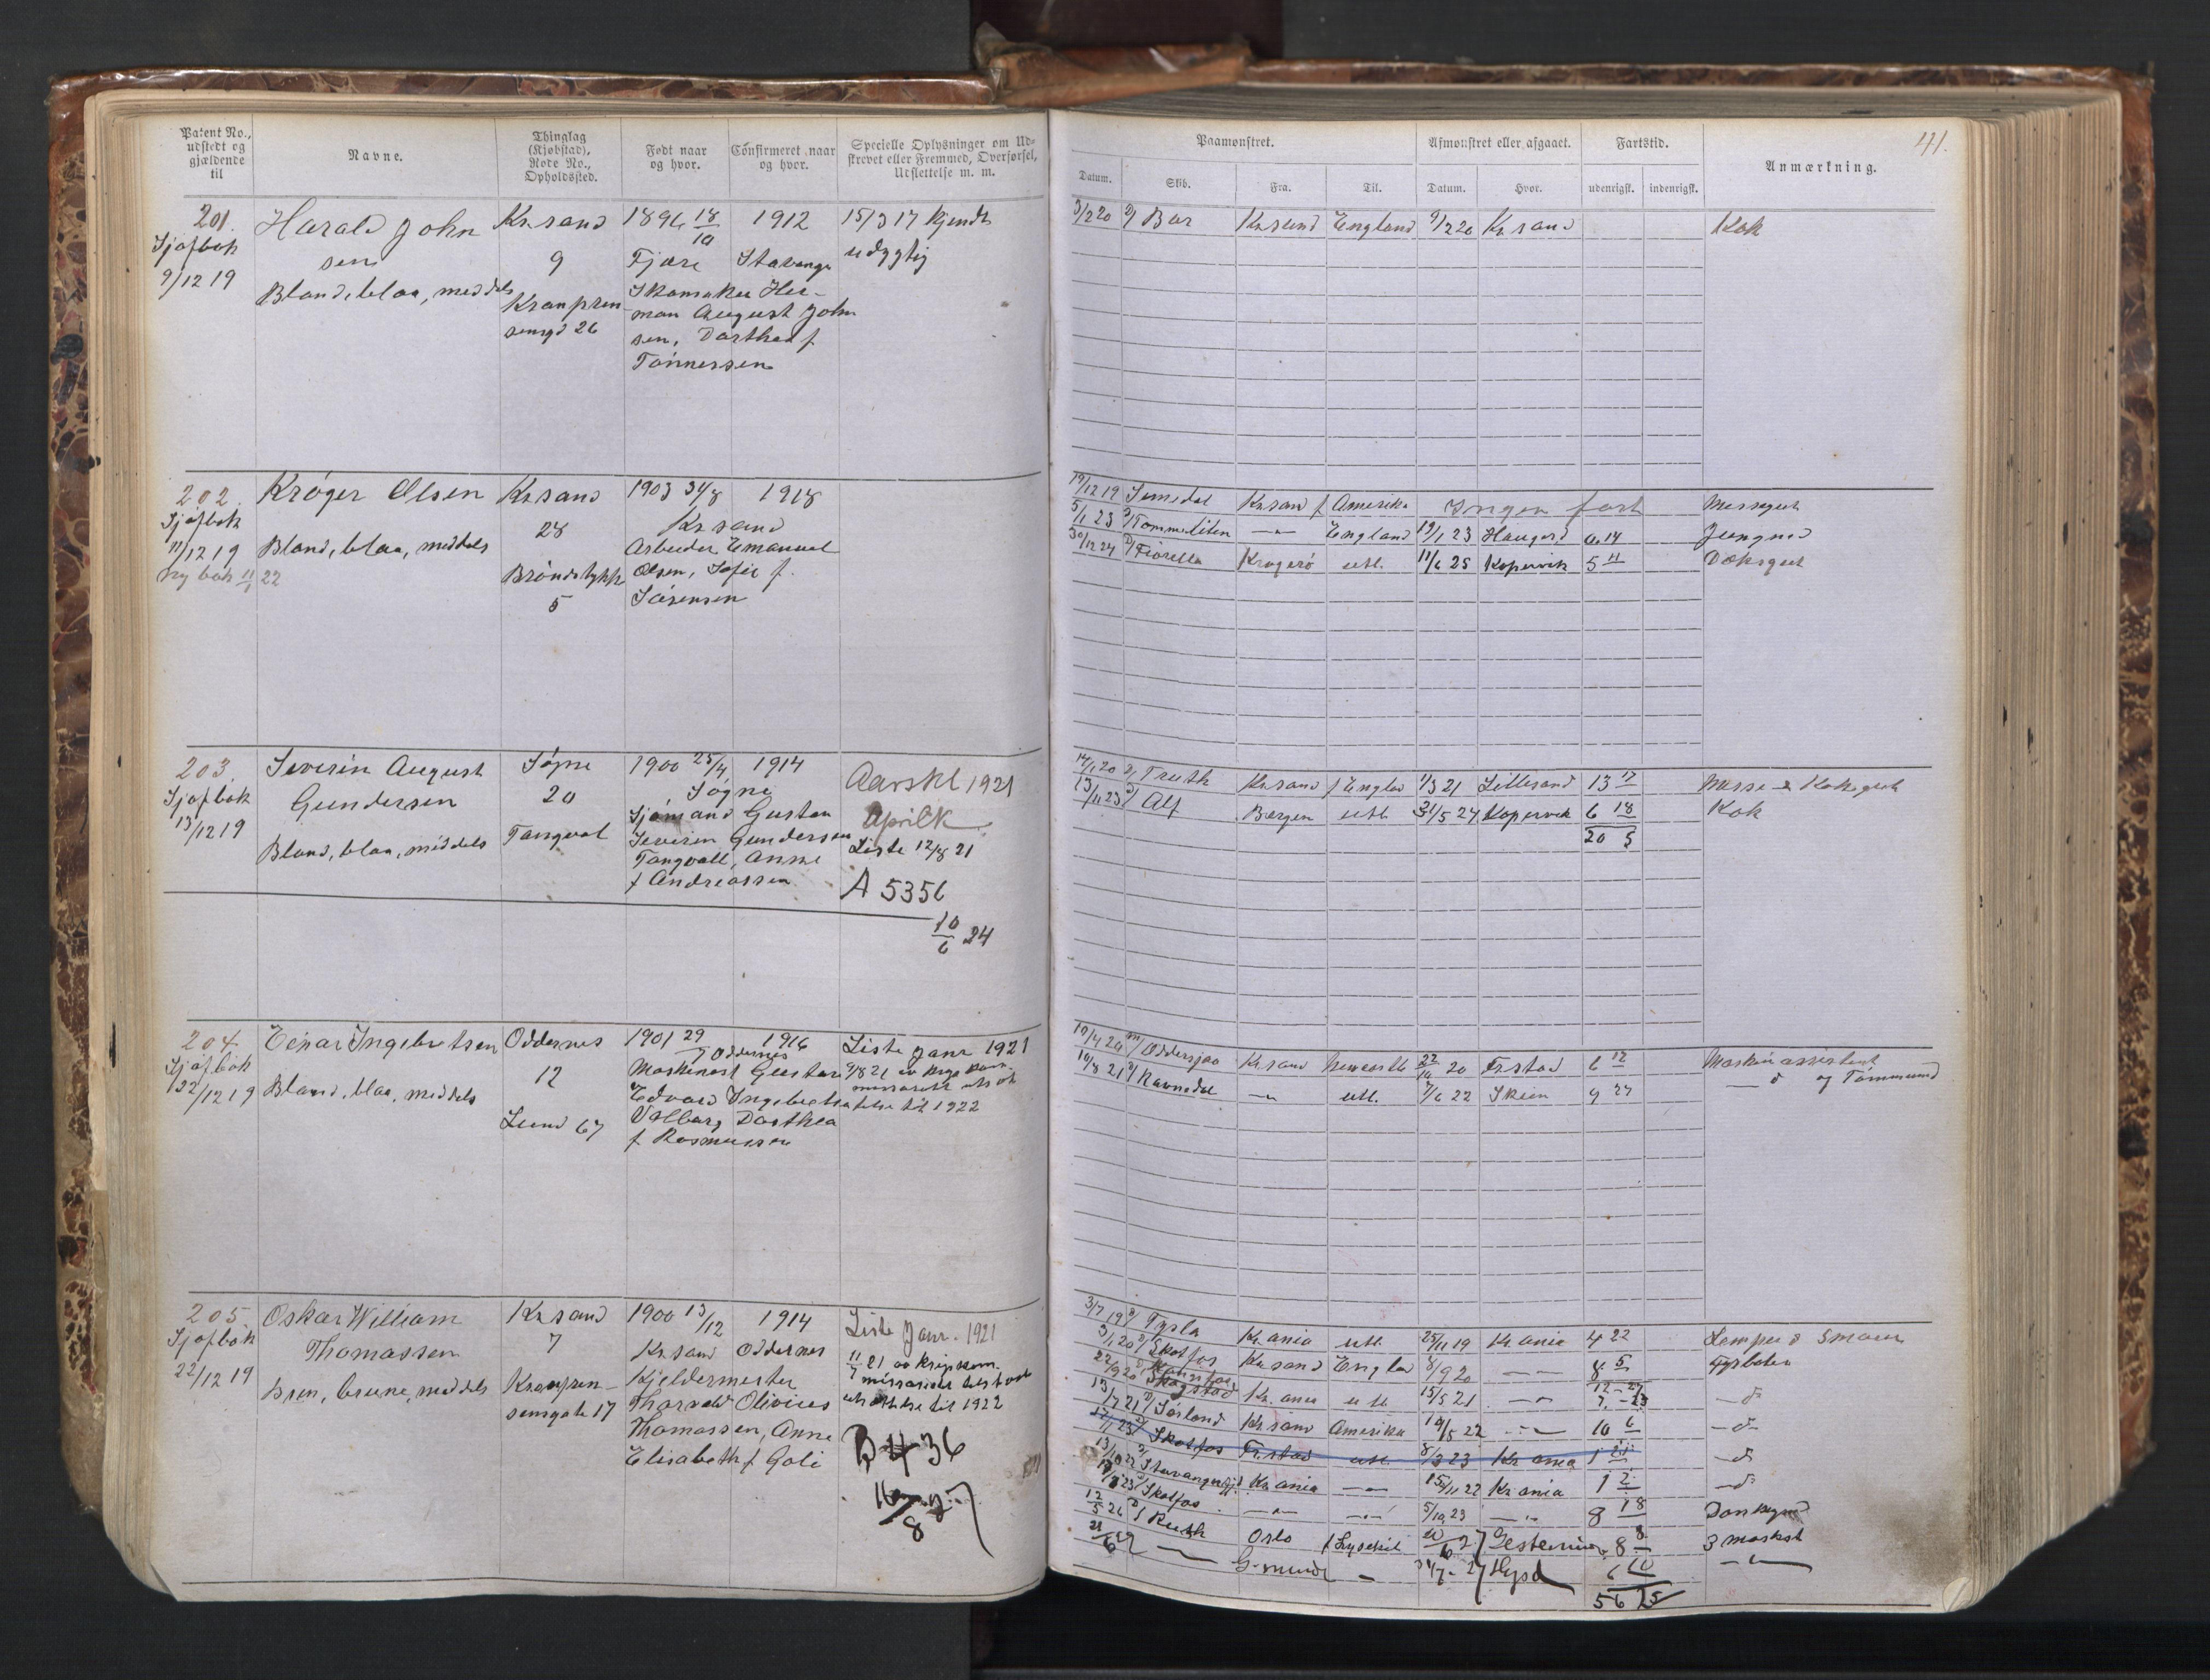 Patent No., udstedt og gjældende til
Navne.
Thinglag (Kjøbstad), Rode No., Opholdssted.
Født naar og hvor.
Confirmeret naar og hvor.
Specielle Oplysninger om Udstrevet eller Fremmed, Overførsel, Udslettelse m. m.
Paamønstret.
Afmønstret eller afgaaet.
Fartstid.
Anmærkning.
41.
Datum.
Skib.
Fra.
Til.
Datum.
Hvor.
udenrigsk.
indenrigsk.
201.
Sjøfbok
9/12 19
Harald John
sen
Blond, blaa, middels
Kr.sand
9
Kronprin
sensgd 26
1896 18/10
1912
Fjære
Stavange
Skomaker Her-
man August John
sen, Dorthea f
Tønnessen
15/3 17 kjendt
udygtig
3/2 20 D/ Bur Kr.sand England 9/2 20 Kr.sand
Kok
202.
Sjøfbok
11/12 19
Ny bok 11/1 22
Krøger Olsen
Blond, blaa, middels
Kr.sand
28
Brøndstykk
5
1903 31/8
1918
Kr.sand
Arbeider Emanuel
Olsen, Sofie f.
Sørensen
19/12 19 Kr.sand f Amerika Ingen fart
5/1 23 D/ Tommeliten —"— England 19/1 23 Haugesd 0.14 Jungmd
30/12 24 D/ Fiorella Kragerø utl. 11/6 25 Kopervik 5 11 Dæksgut
203.
Sjøfbok
13/12 19
Severin August
Gundersen
Blond, blaa, middels
Søgne
20
Tangvol
1900 25/4
1914
Søgne
Sjømand Gustav
Severin Gundersen
Tangvall, Anne
f Andreassen
Aarskl 1921
Aprilk
Liste 12/8 21
A 5356
10/6 24
14/1 20 D/ Truth Kr.sand f England 1/3 21 Lillesand 13 17 Messe & Koksgut
13/11 23 D/ Alf Bergen utl. 31/5 24 Kopervik 6 18 Kok
20 5
204.
Sjøfbok
22/12 19
Einar Ingebretsen
Blond, blaa, middels
Oddernes
12
Lund 67
1901 29/7
1916
Oddernes
Maskinist Gustav
Edvard Ingebretsen
Valborg Dorthea
f Rasmussen
Liste Janr 1921
telse til 1922
19/4 20 M/ Oddersjaa Kr.sand Newcastle 22/10 20 Fr.stad 6 12 Maskinassistent
10/8 21 D/ Ravnedal —"— utl. 7/6 22 Skien 9 27 — d og Tømmermd
205.
Sjøfbok
22/12 19
Oskar William
Thomassen
brun, brune, middels
Kr.sand
7
Kronprin-
sensgate 17
1900 13/12
1914
Kr.sand
Oddernes
Kjeldermester
Thorvald Olivius
Thomassen, Anne
Elisabeth f Goli
Liste Janr. 1921
11/7 21 av krigskom-
missariatet tilstaat
utsættelse til 1922
B 436
16/8 27
3/7 19 D/ Tysla Kr.ania utl. 25/11 19 Kr.ania 4 22 Lemper & Smører
3/1 20 D/ Skotfos Kr.sand Englad 8/9 20 —"— 8 5 Fyrbøter
12-27
22/9 20 D/ Skogstad Kr.ania utl 15/5 21 —"— 7.-23 —d—
13/7 21 D/ Sørland Kr.sand Amerika 19/5 22 —"— 10 6 —d—
17/1 23 D/ Skotfos Fr.stad utl. 8/3 23 Kr.ania 1 21 —d
13/10 22 D/ Stavangerfjd. Kr.ania —"— 15/11 22 Kr.ania 1 2 —d
D/ Skotfos —"— —"— 5/10 23 —"— 8 18 Donkeymd
12/5 26 D/ Ruth Oslo f Lysekil 27 8 8 3 maskst
21/6 27 —"— G-munde — 27 Hgsd 6 10 —"—
56 25